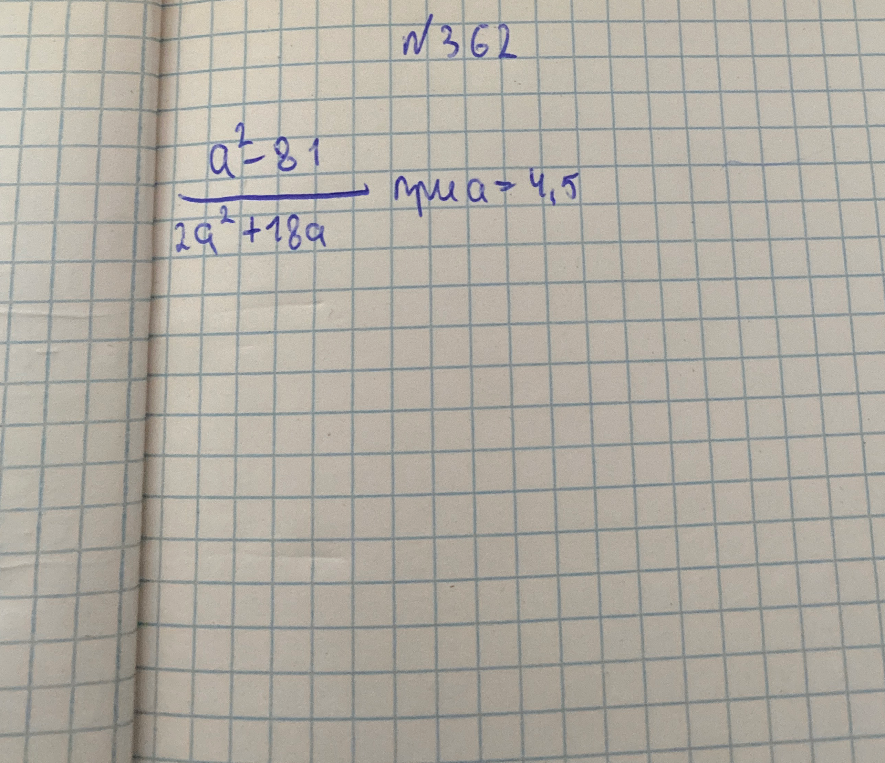 №362
a²-81
2a²+18a
при a = 4,5